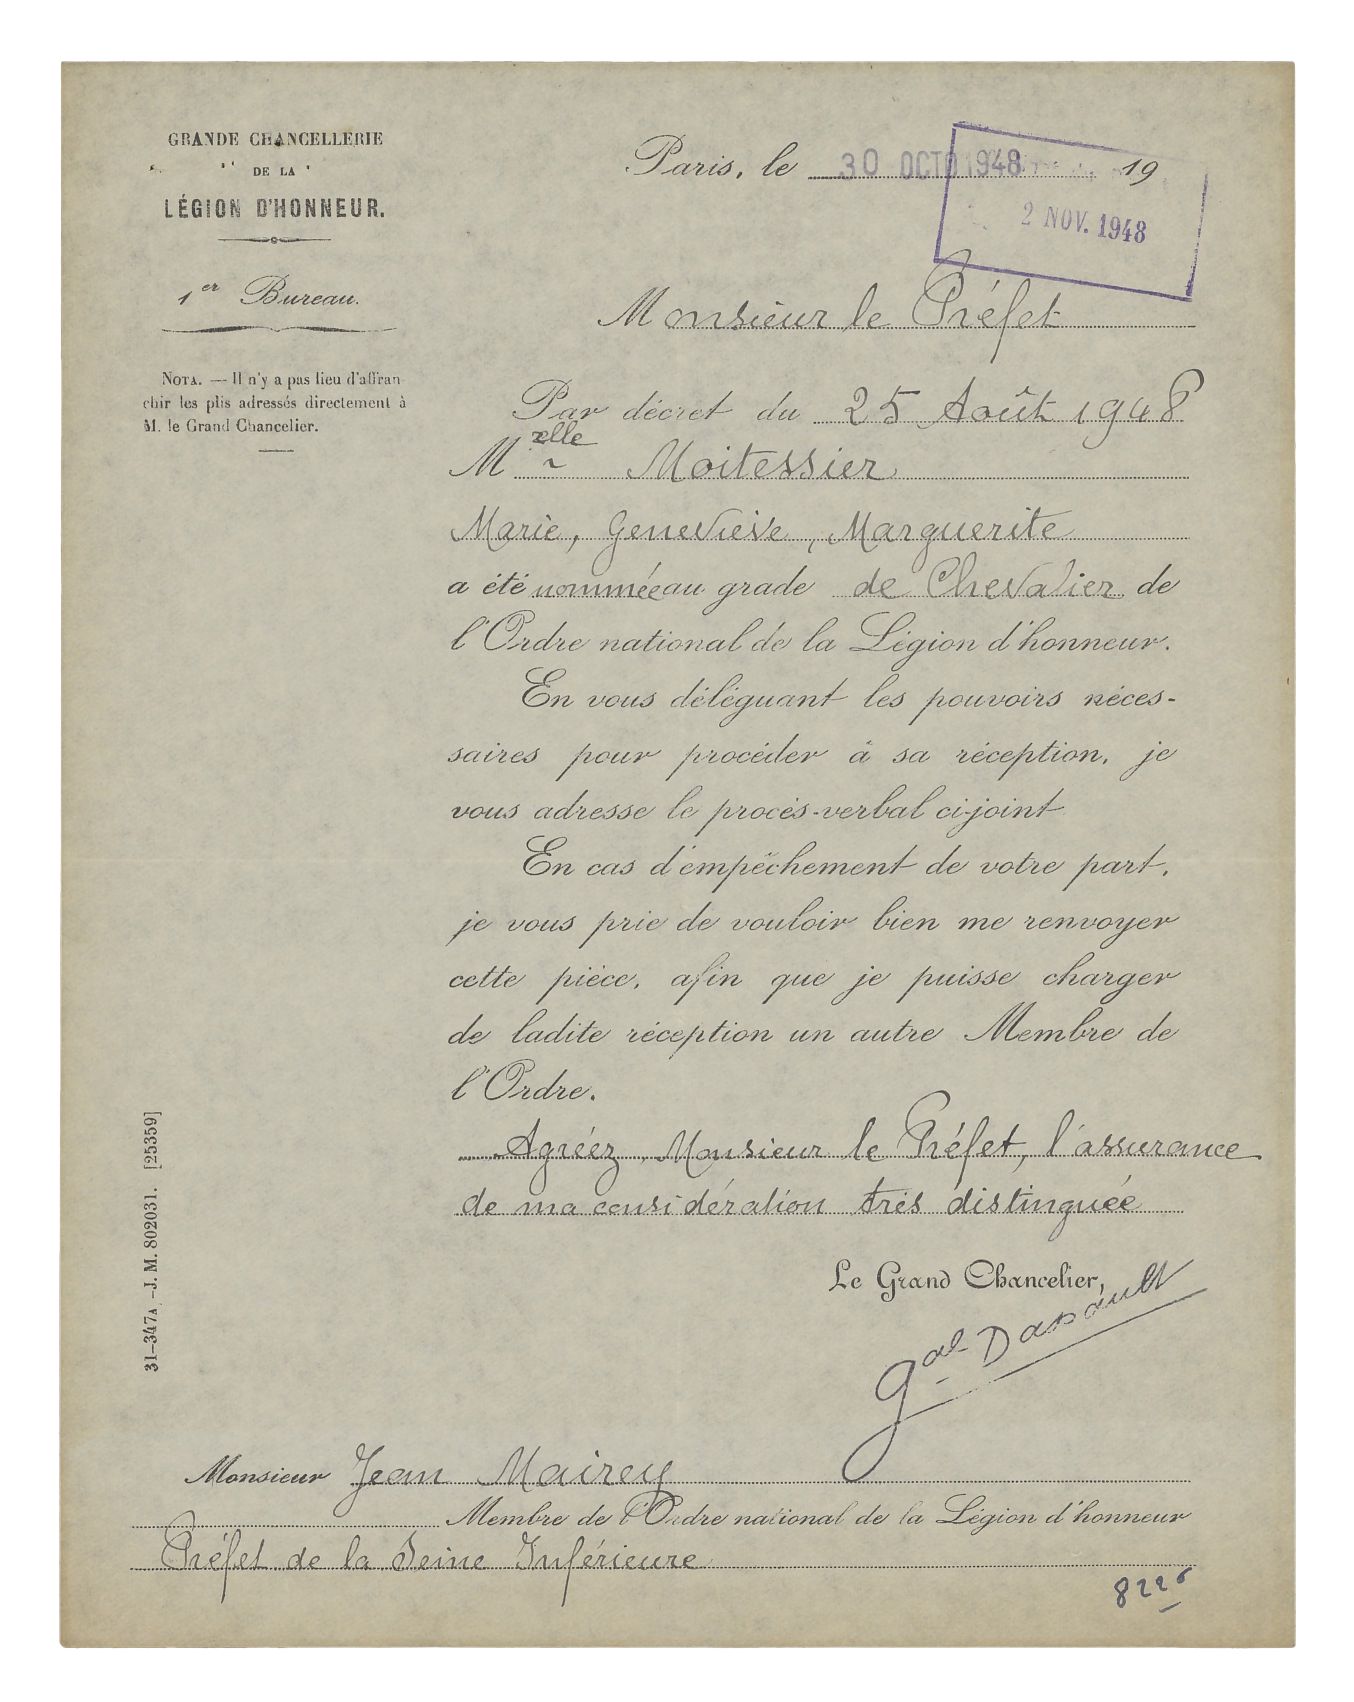 GRANDE CHANCELLERIE
DE LA
LÉGION D'HONNEUR.
1er Bureau.
NOTA. — Il n'y a pas lieu d'affran-
chir les plis adressés directement à
M. le Grand Chancelier.
Paris, le 30 OCTO 1948 19
2 NOV. 1948
Monsieur le Préfet
Par décret du 25 Août 1948
Melle Moitessier
Marie, Geneviève, Marguerite
a été nommée au grade de Chevalier de
l'Ordre national de la Légion d'honneur.
En vous déléguant les pouvoirs néces-
saires pour procéder à sa réception, je
vous adresse le procès-verbal ci-joint
En cas d'empêchement de votre part,
je vous prie de vouloir bien me renvoyer
cette pièce, afin que je puisse charger
de ladite réception un autre Membre de
l'Ordre.
Agréez, Monsieur le Préfet, l'assurance
de ma considération très distinguée
Le Grand Chancelier,
Gal Dassault
31-347A. – J. M. 802031. [25359]
Monsieur Jean Mairey
Membre de l'Ordre national de la Légion d'honneur
Préfet de la Seine Inférieure